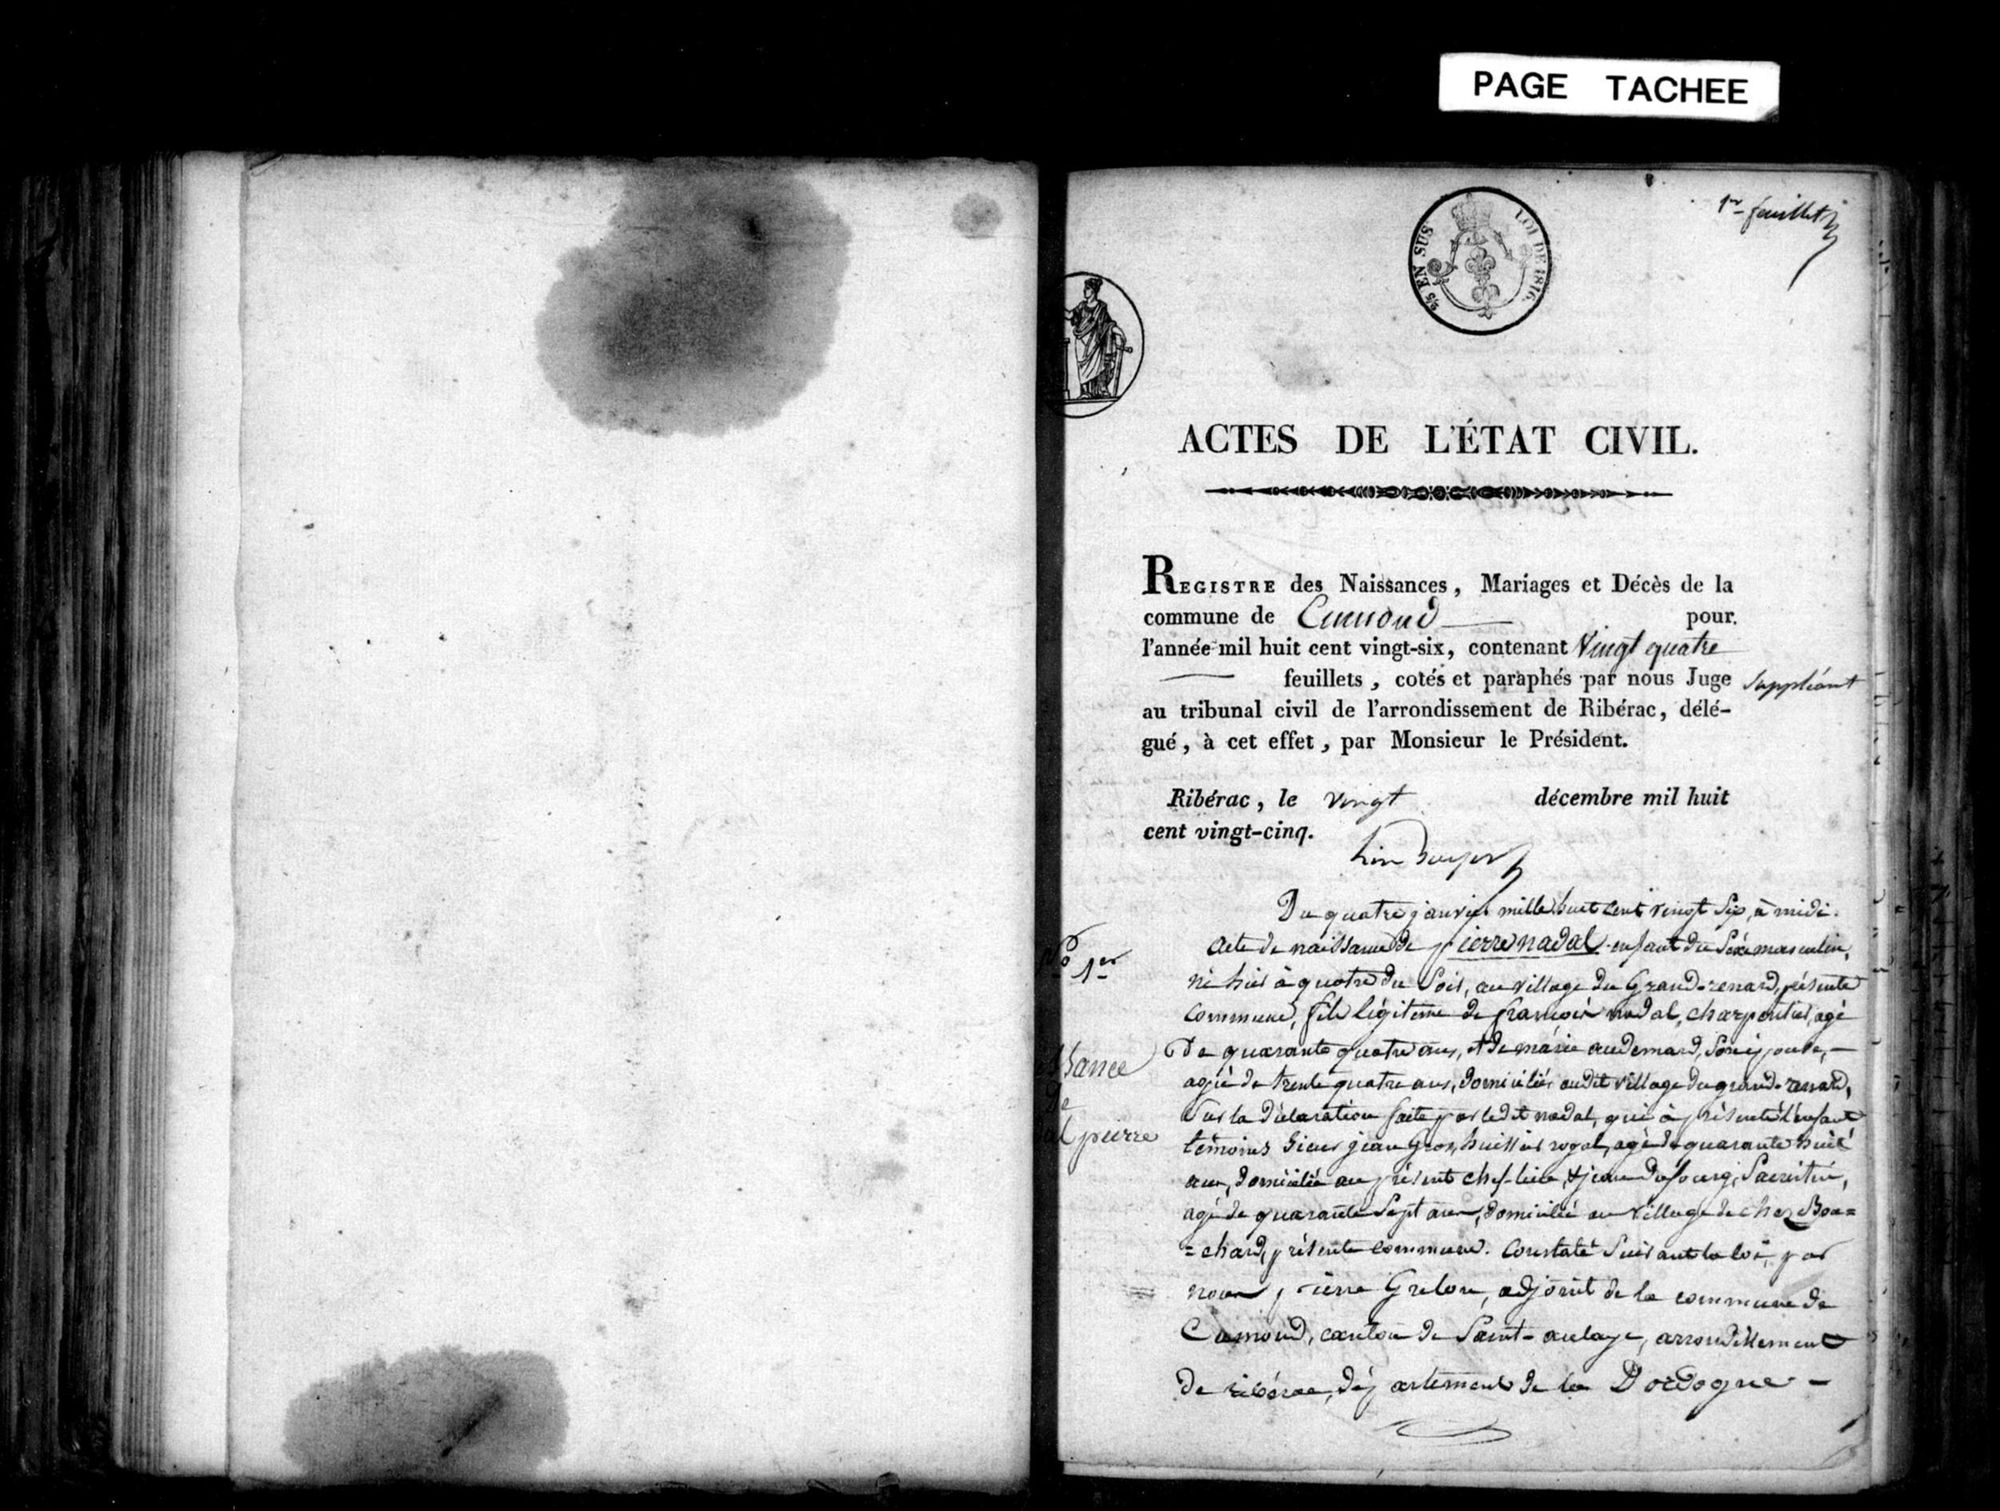 PAGE TACHEE
1er feuillet
2/5 EN SUS
LOI DE 1816.
ACTES DE L'ÉTAT CIVIL.
REGISTRE des Naissances, Mariages et Décès de la
commune de Cumond pour
l'année mil huit cent vingt-six, contenant Vingt quatre
feuillets, cotés et paraphés par nous Juge suppléant
au tribunal civil de l'arrondissement de Ribérac, délé-
gué, à cet effet, par Monsieur le Président.
Ribérac, le vingt décembre mil huit
cent vingt-cinq.
Du quatre janvier mille huit cent vingt six, à midi.
No 1er
acte de naissance de pierre nadal enfant du sexe masculin,
né hier à quatre du soir, au village du Grand-renard, présente
commune, fils légitime de françois nadal, charpentier, agé
De quarante quatre ans, et de marie audemard, son épouse, —
agée de trente quatre ans, domiciliés audit village du grand-renard,
sur la déclaration faite par ledit nadal, qui à présenté l'enfant
sance
de
al pierre
témoins sieur jean Gros, huissier royal, agé de quarante huit
ans, domicilié au présent chef-lieu, & jean dufourg, sacristin,
agé de quarante sept ans, domicilié au village de chez Bou=
=chard, présente commune. Constaté suivant la loi, par
nous pierre Grelou, adjoint de la commune de
Cumond, canton de Saint-aulaye, arrondissement
de ribérac, département de la Dordogne —